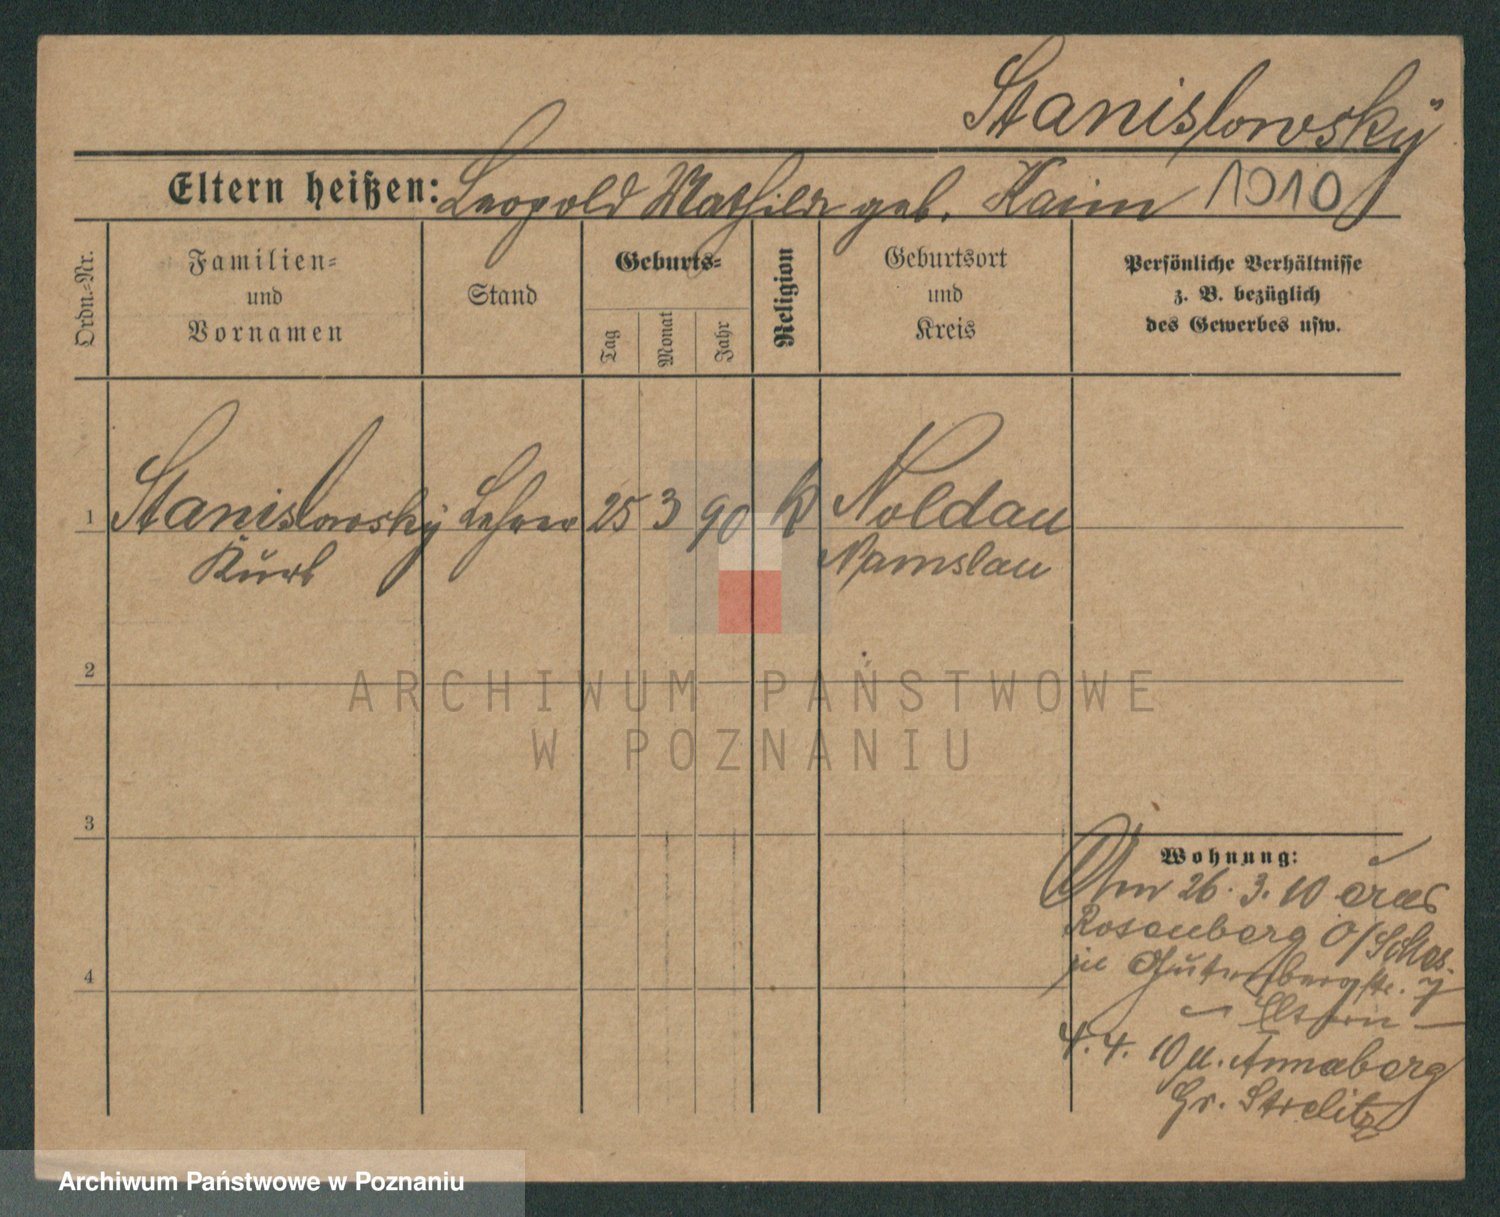 Stanislowsky
Eltern heißen: Leopold Mathilde geb. Kaim 1910
Ordn.-Nr.
Familien-
und
Vornamen
Stand
Geburts-
Tag
Monat
Jahr
Religion
Geburtsort
und
Kreis
Persönliche Verhältnisse
z. B. bezüglich
des Gewerbes usw.
1 Stanislowsky Lehrer 25 3 90 k Noldau
Kurt Namslau
2
3
4
Wohnung:
26. 3. 10
Rosenberg O/Schles.
Gutenbergstr. 7
Eltern
4. 4. 10 n. Annaberg
Gr. Strelitz
ARCHIWUM PAŃSTWOWE
W POZNANIU
Archiwum Państwowe w Poznaniu